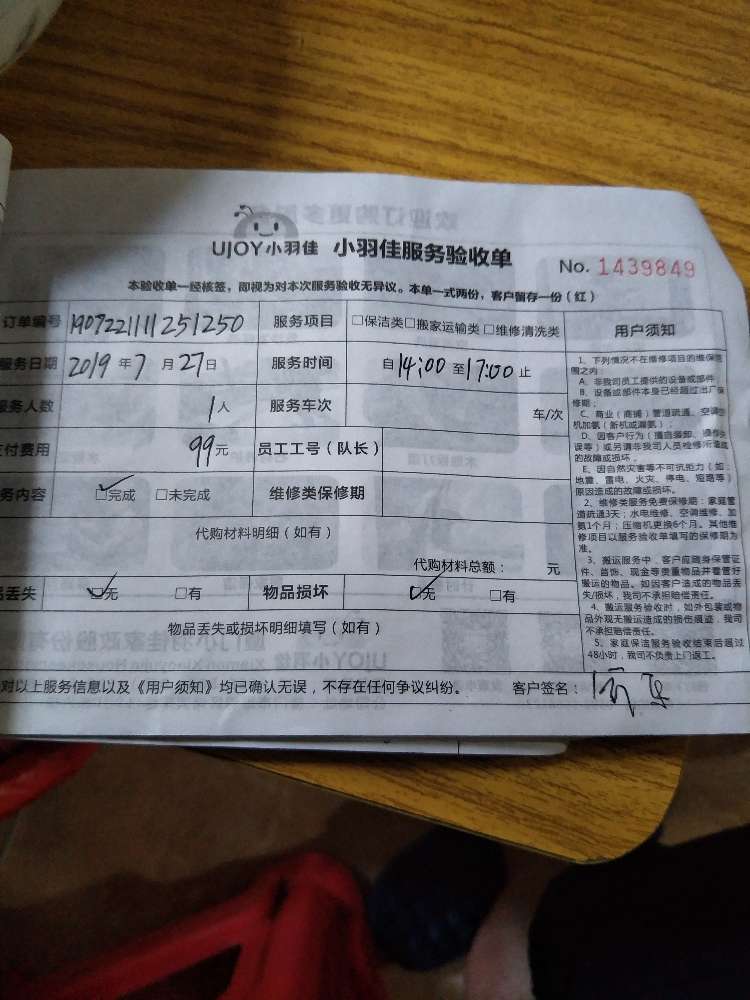 UJOY小羽佳 小羽佳服务验收单
No. 1439849
本验收单一经核签，即视为对本次服务验收无异议。本单一式两份，客户留存一份（红）
订单编号 190722111251250 服务项目 □保洁类□搬家运输类□维修清洗类 用户须知
服务日期 2019 年 7 月 27日 服务时间 自14:00 至17:00 止
服务人数 1人 服务车次 车/次
付费用 99元 员工工号（队长）
务内容 □完成 □未完成 维修类保修期
代购材料明细（如有）
代购材料总额： 元
丢失 □无 □有 物品损坏 □无 □有
物品丢失或损坏明细填写（如有）
对以上服务信息以及《用户须知》均已确认无误，不存在任何争议纠纷。 客户签名：
1、下列情况不在维修项目的维保范
围之内
A、非我司员工提供的设备或部件
B、设备或部件本身已经超过出厂保
修期；
C、商业（商铺）管道疏通、空调
机加氨（新机或漏氨）；
D、因客户行为（擅自装卸、操作失
误等）或另请非我司人员检修所造成
的故障或损坏。
E、因自然灾害等不可抗拒力（如：
地震、雷电、火灾、停电、短路等）
原因造成的故障或损坏。
2、维修类服务免费保修期：家庭管
道疏通3天；水电维修、空调维修、加
氨1个月；压缩机更换6个月。其他维
修项目以服务验收单填写的保修期为
准。
3、搬运服务中，客户应随身保管证
件、首饰、现金等贵重物品并看管好
搬运的物品。如因客户造成的物品丢
失/损坏，我司不承担赔偿责任。
4、搬运服务验收时，如外包装或物
品外观无搬运造成的损伤痕迹，我司
不承担赔偿责任。
5、家庭保洁服务验收结束后超过
48小时，我司不负责上门返工。